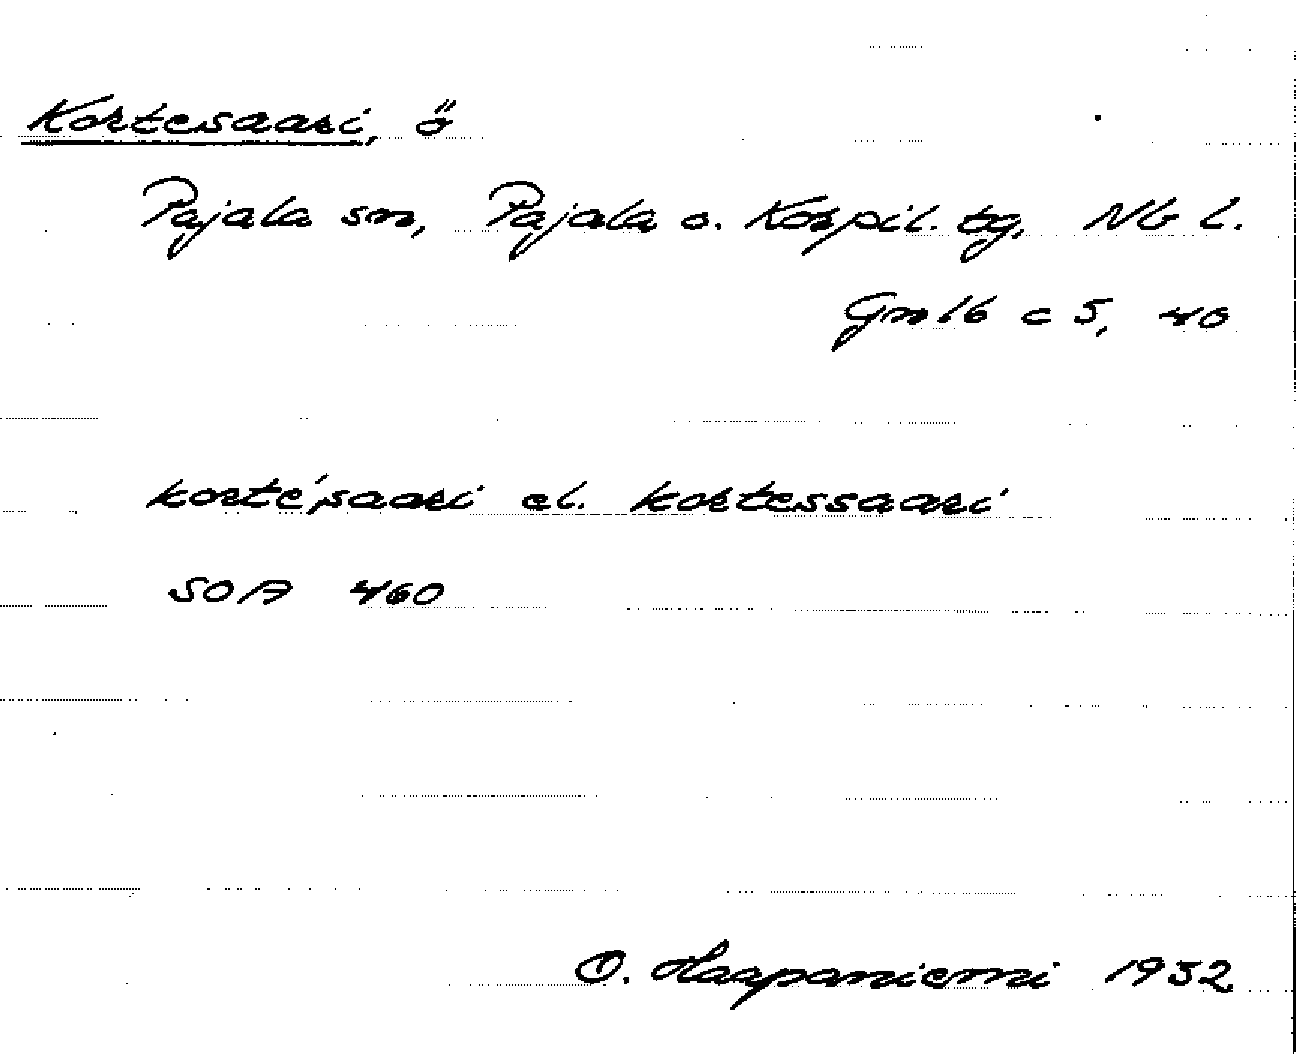 Kortesaari, ö
Pajala sn, Pajala o. Korpil. tg, Nb l.
Gn 16 c 5, 40
korte'saari el. kortessaari
SOA 460
O. Haapaniemi 1952